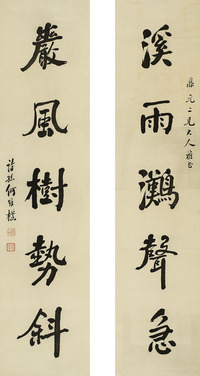 溪雨灘聲急
鼎元二兄大人雅正
巖風樹勢斜
詩孫何維樸